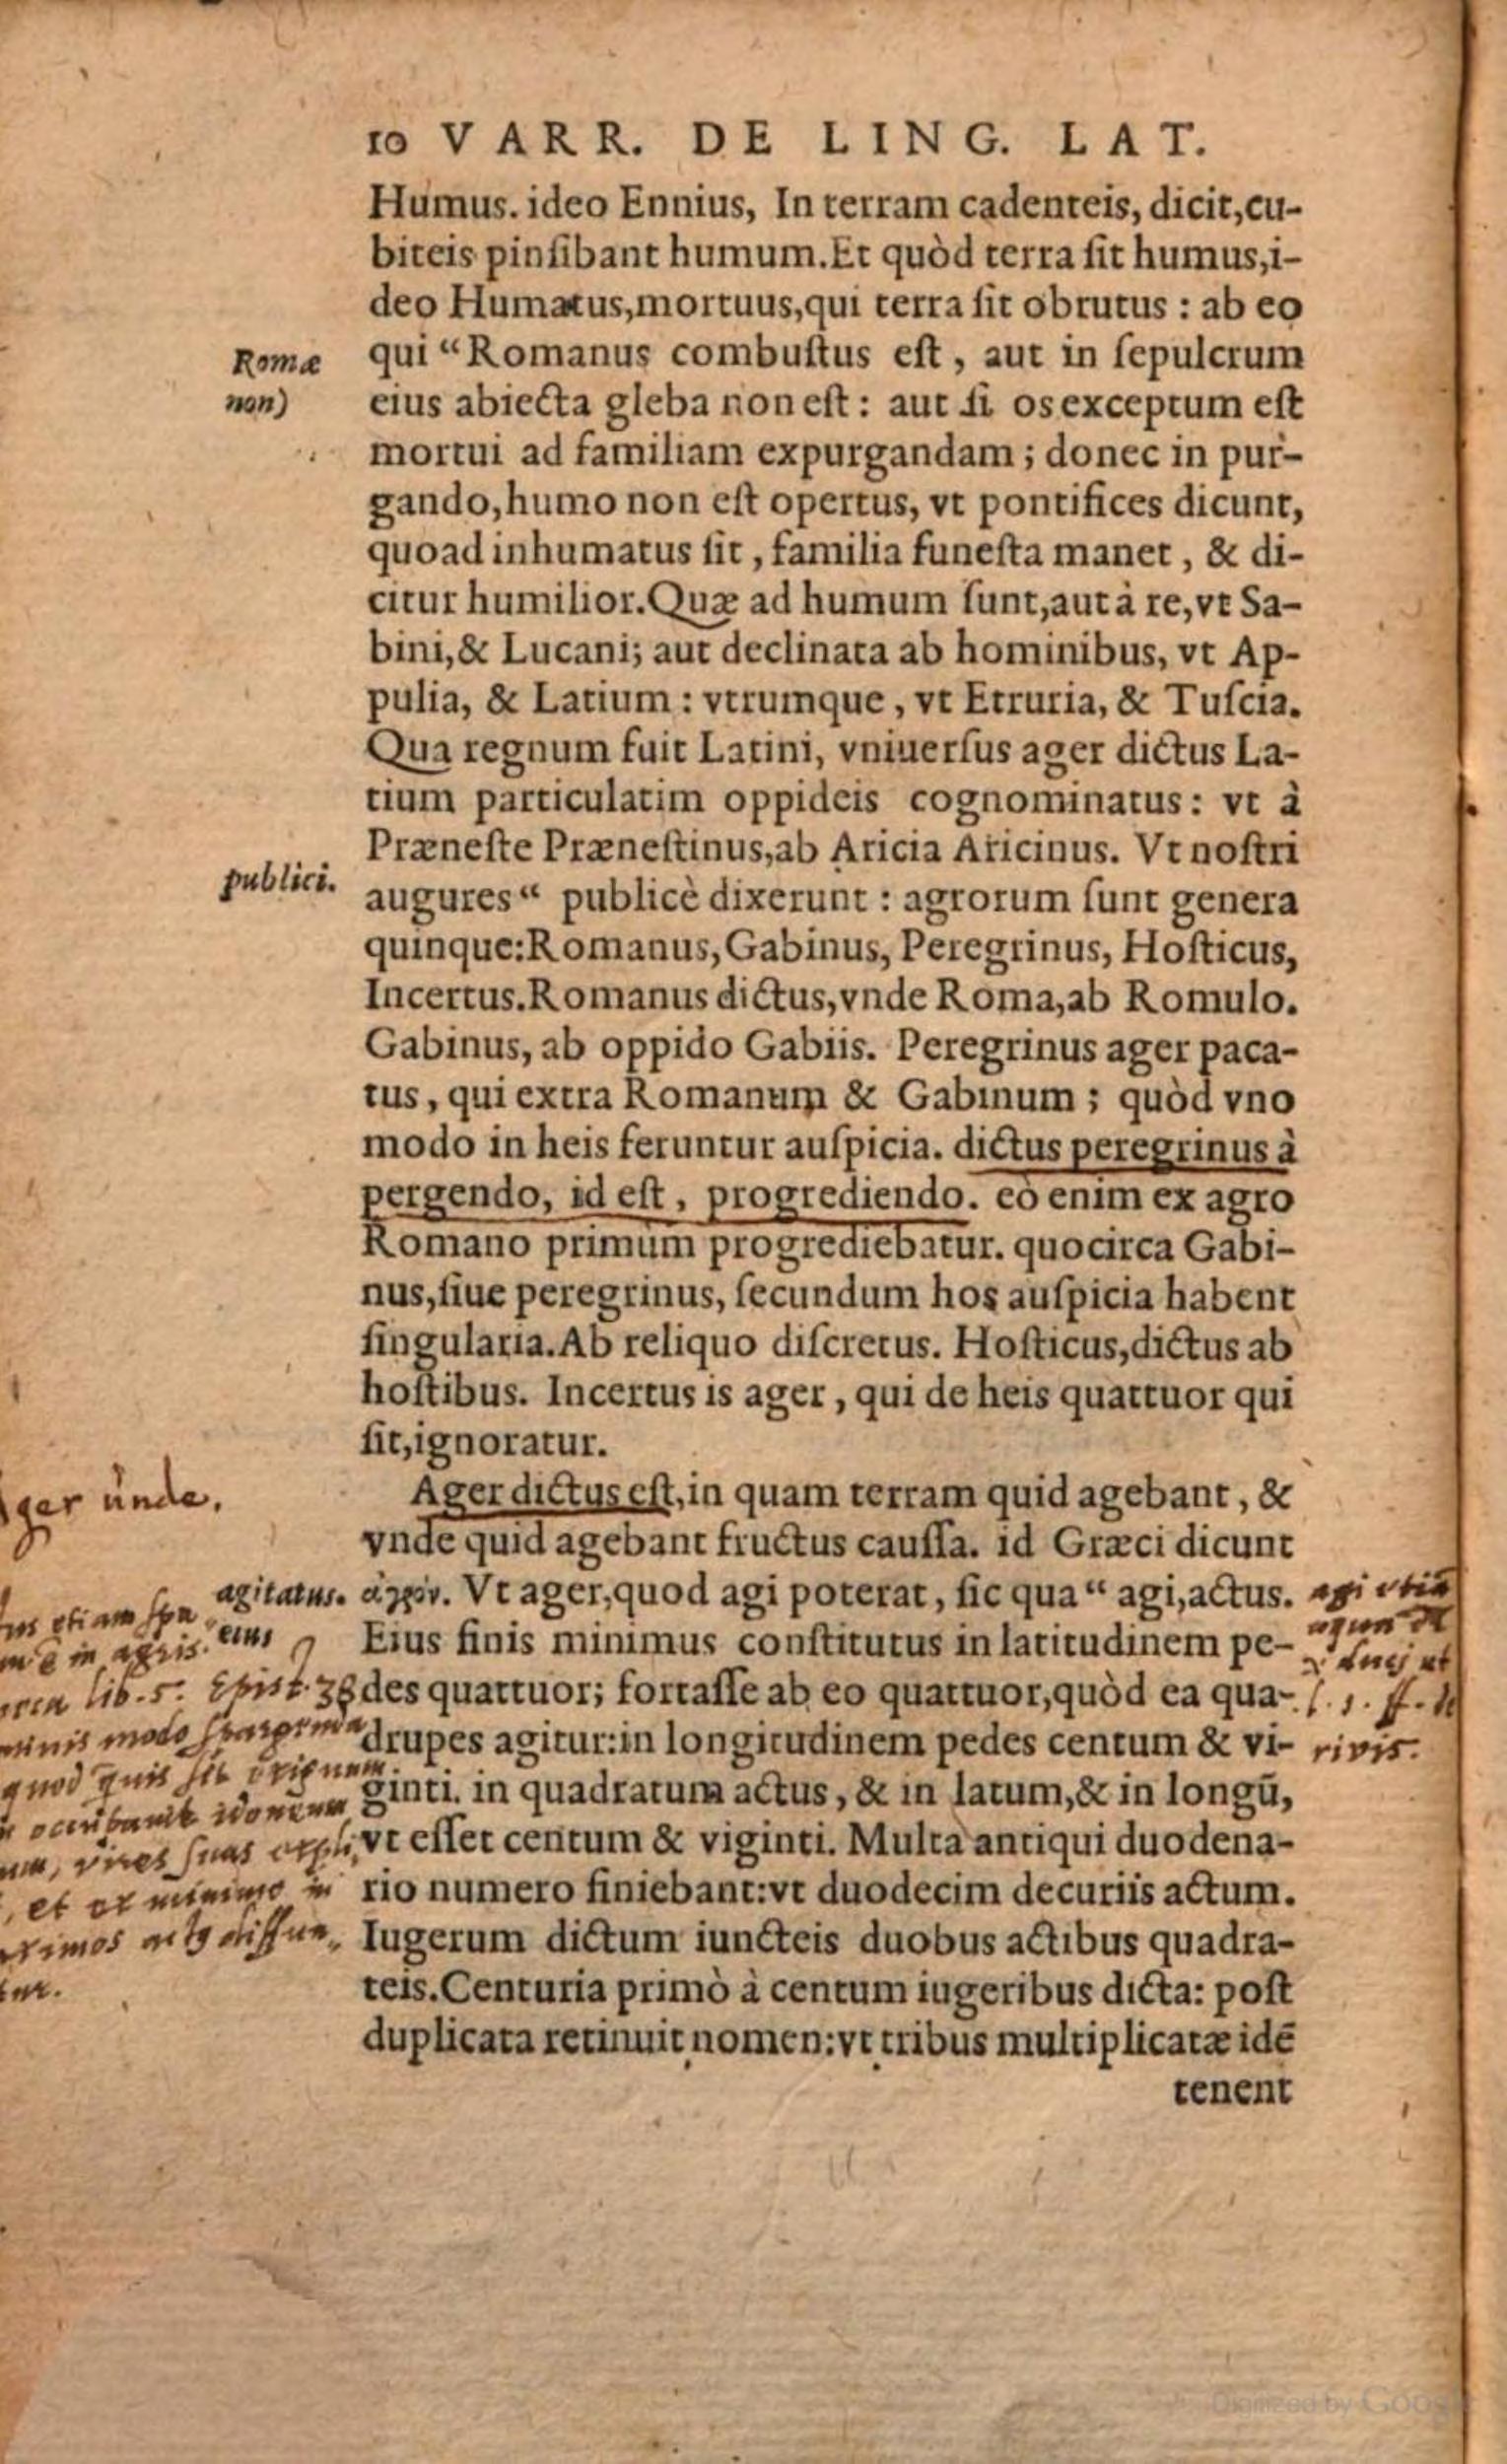 10 VARR. DE LING. LAT.
Humus. ideo Ennius, In terram cadenteis, dicit,cu-
biteis pinſibant humum.Et quòd terra ſit humus,i-
deo Humatus,mortuus,qui terra ſit obrutus : ab eo
Romæ
qui “Romanus combuſtus eſt, aut in ſepulcrum
non)
eius abiecta gleba non eſt: aut ſi os exceptum eſt
mortui ad familiam expurgandam; donec in pur-
gando,humo non eſt opertus, vt pontifices dicunt,
quoad inhumatus ſit, familia funeſta manet, & di-
citur humilior.Quæ ad humum ſunt,aut à re,vt Sa-
bini,& Lucani; aut declinata ab hominibus, vt Ap-
pulia, & Latium : vtrumque, vt Etruria, & Tuſcia.
Qua regnum fuit Latini, vniuerſus ager dictus La-
tium particulatim oppideis cognominatus: vt à
Præneſte Præneſtinus,ab Aricia Aricinus. Vt noſtri
publici.
augures“ publicè dixerunt : agrorum ſunt genera
quinque:Romanus,Gabinus, Peregrinus, Hoſticus,
Incertus.Romanus dictus,vnde Roma,ab Romulo.
Gabinus, ab oppido Gabiis. Peregrinus ager paca-
tus, qui extra Romanum & Gabinum; quòd vno
modo in heis feruntur auſpicia. dictus peregrinus à
pergendo, id eſt, progrediendo. eò enim ex agro
Romano primùm progrediebatur. quocirca Gabi-
nus,ſiue peregrinus, ſecundum hos auſpicia habent
ſingularia.Ab reliquo diſcretus. Hoſticus,dictus ab
hoſtibus. Incertus is ager, qui de heis quattuor qui
ſit,ignoratur.
ger unde.
Ager dictus eſt,in quam terram quid agebant, &
vnde quid agebant fructus cauſſa. id Græci dicunt
agitatus.
ἀγρόν. Vt ager,quod agi poterat, ſic qua“ agi,actus.
eius
Eius finis minimus conſtitutus in latitudinem pe-
lib. 5. Epist. 38
des quattuor; fortaſſe ab eo quattuor,quòd ea qua-
drupes agitur:in longitudinem pedes centum & vi-
rivis.
ginti. in quadratum actus, & in latum,& in longũ,
vt eſſet centum & viginti. Multa antiqui duodena-
et ex minimo in
rio numero finiebant:vt duodecim decuriis actum.
Iugerum dictum iuncteis duobus actibus quadra-
teis.Centuria primò à centum iugeribus dicta: poſt
duplicata retinuit nomen:vt tribus multiplicatæ idẽ
tenent
Digitized by Google